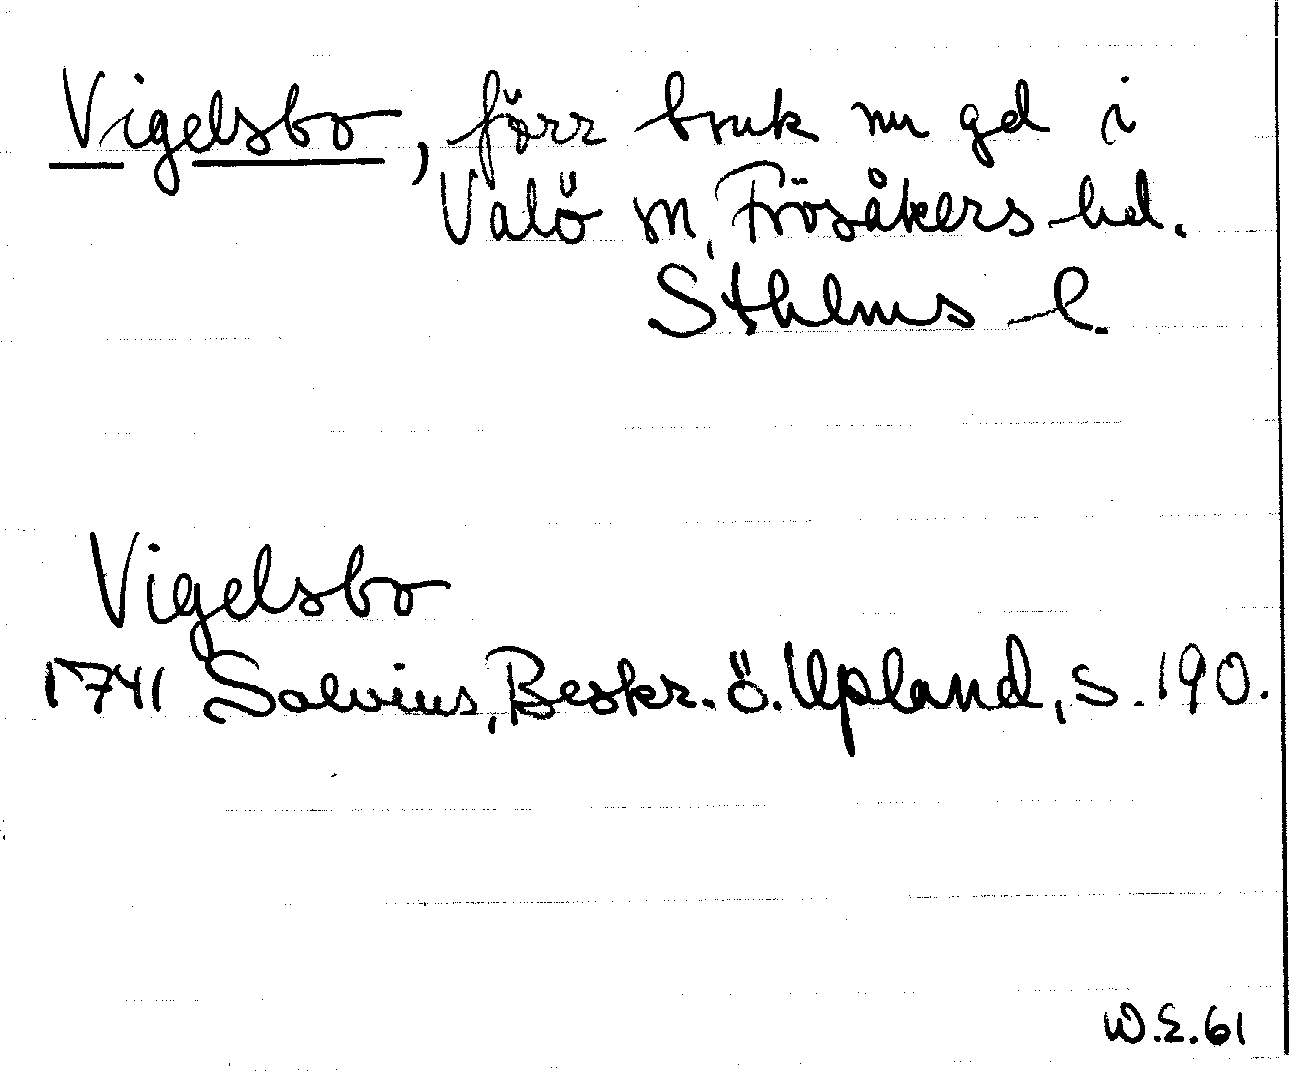 Vigelsbo, förr bruk nu gd i
Valö sn, Frösåkers hd.
Sthlms l.
Vigelsbo
1741 Salvius, Beskr. ö. Upland, s. 190.
W.E. 61